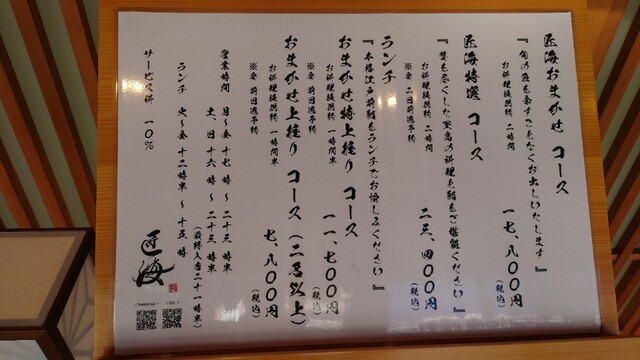 匠海おまかせ コース
『旬の魚を余すことなくお出しいたします』
お料理提供約 二時間
一七、八〇〇円
(税込)
匠海特選 コース
『贅を尽くした至高の料理と鮨をご堪能ください』
お料理提供約 二時間
※要 二日前迄予約
二三、四〇〇円
(税込)
ランチ
『本格江戸前鮨をランチでお愉しみください』
おまかせ特上握り コース
お料理提供約 一時間半
※要 前日迄予約
一一、七〇〇円
(税込)
おまかせ上握り コース (二名以上)
お料理提供約 一時間
※要 前日迄予約
七、八〇〇円
(税込)
営業時間 月〜金 十七 時 〜 二十三 時半
土、日 十六 時 〜 二十三 時半
(最終入店二十一時半)
ランチ 火〜金 十二時半 〜 十五 時
サービス料 一〇%
匠海